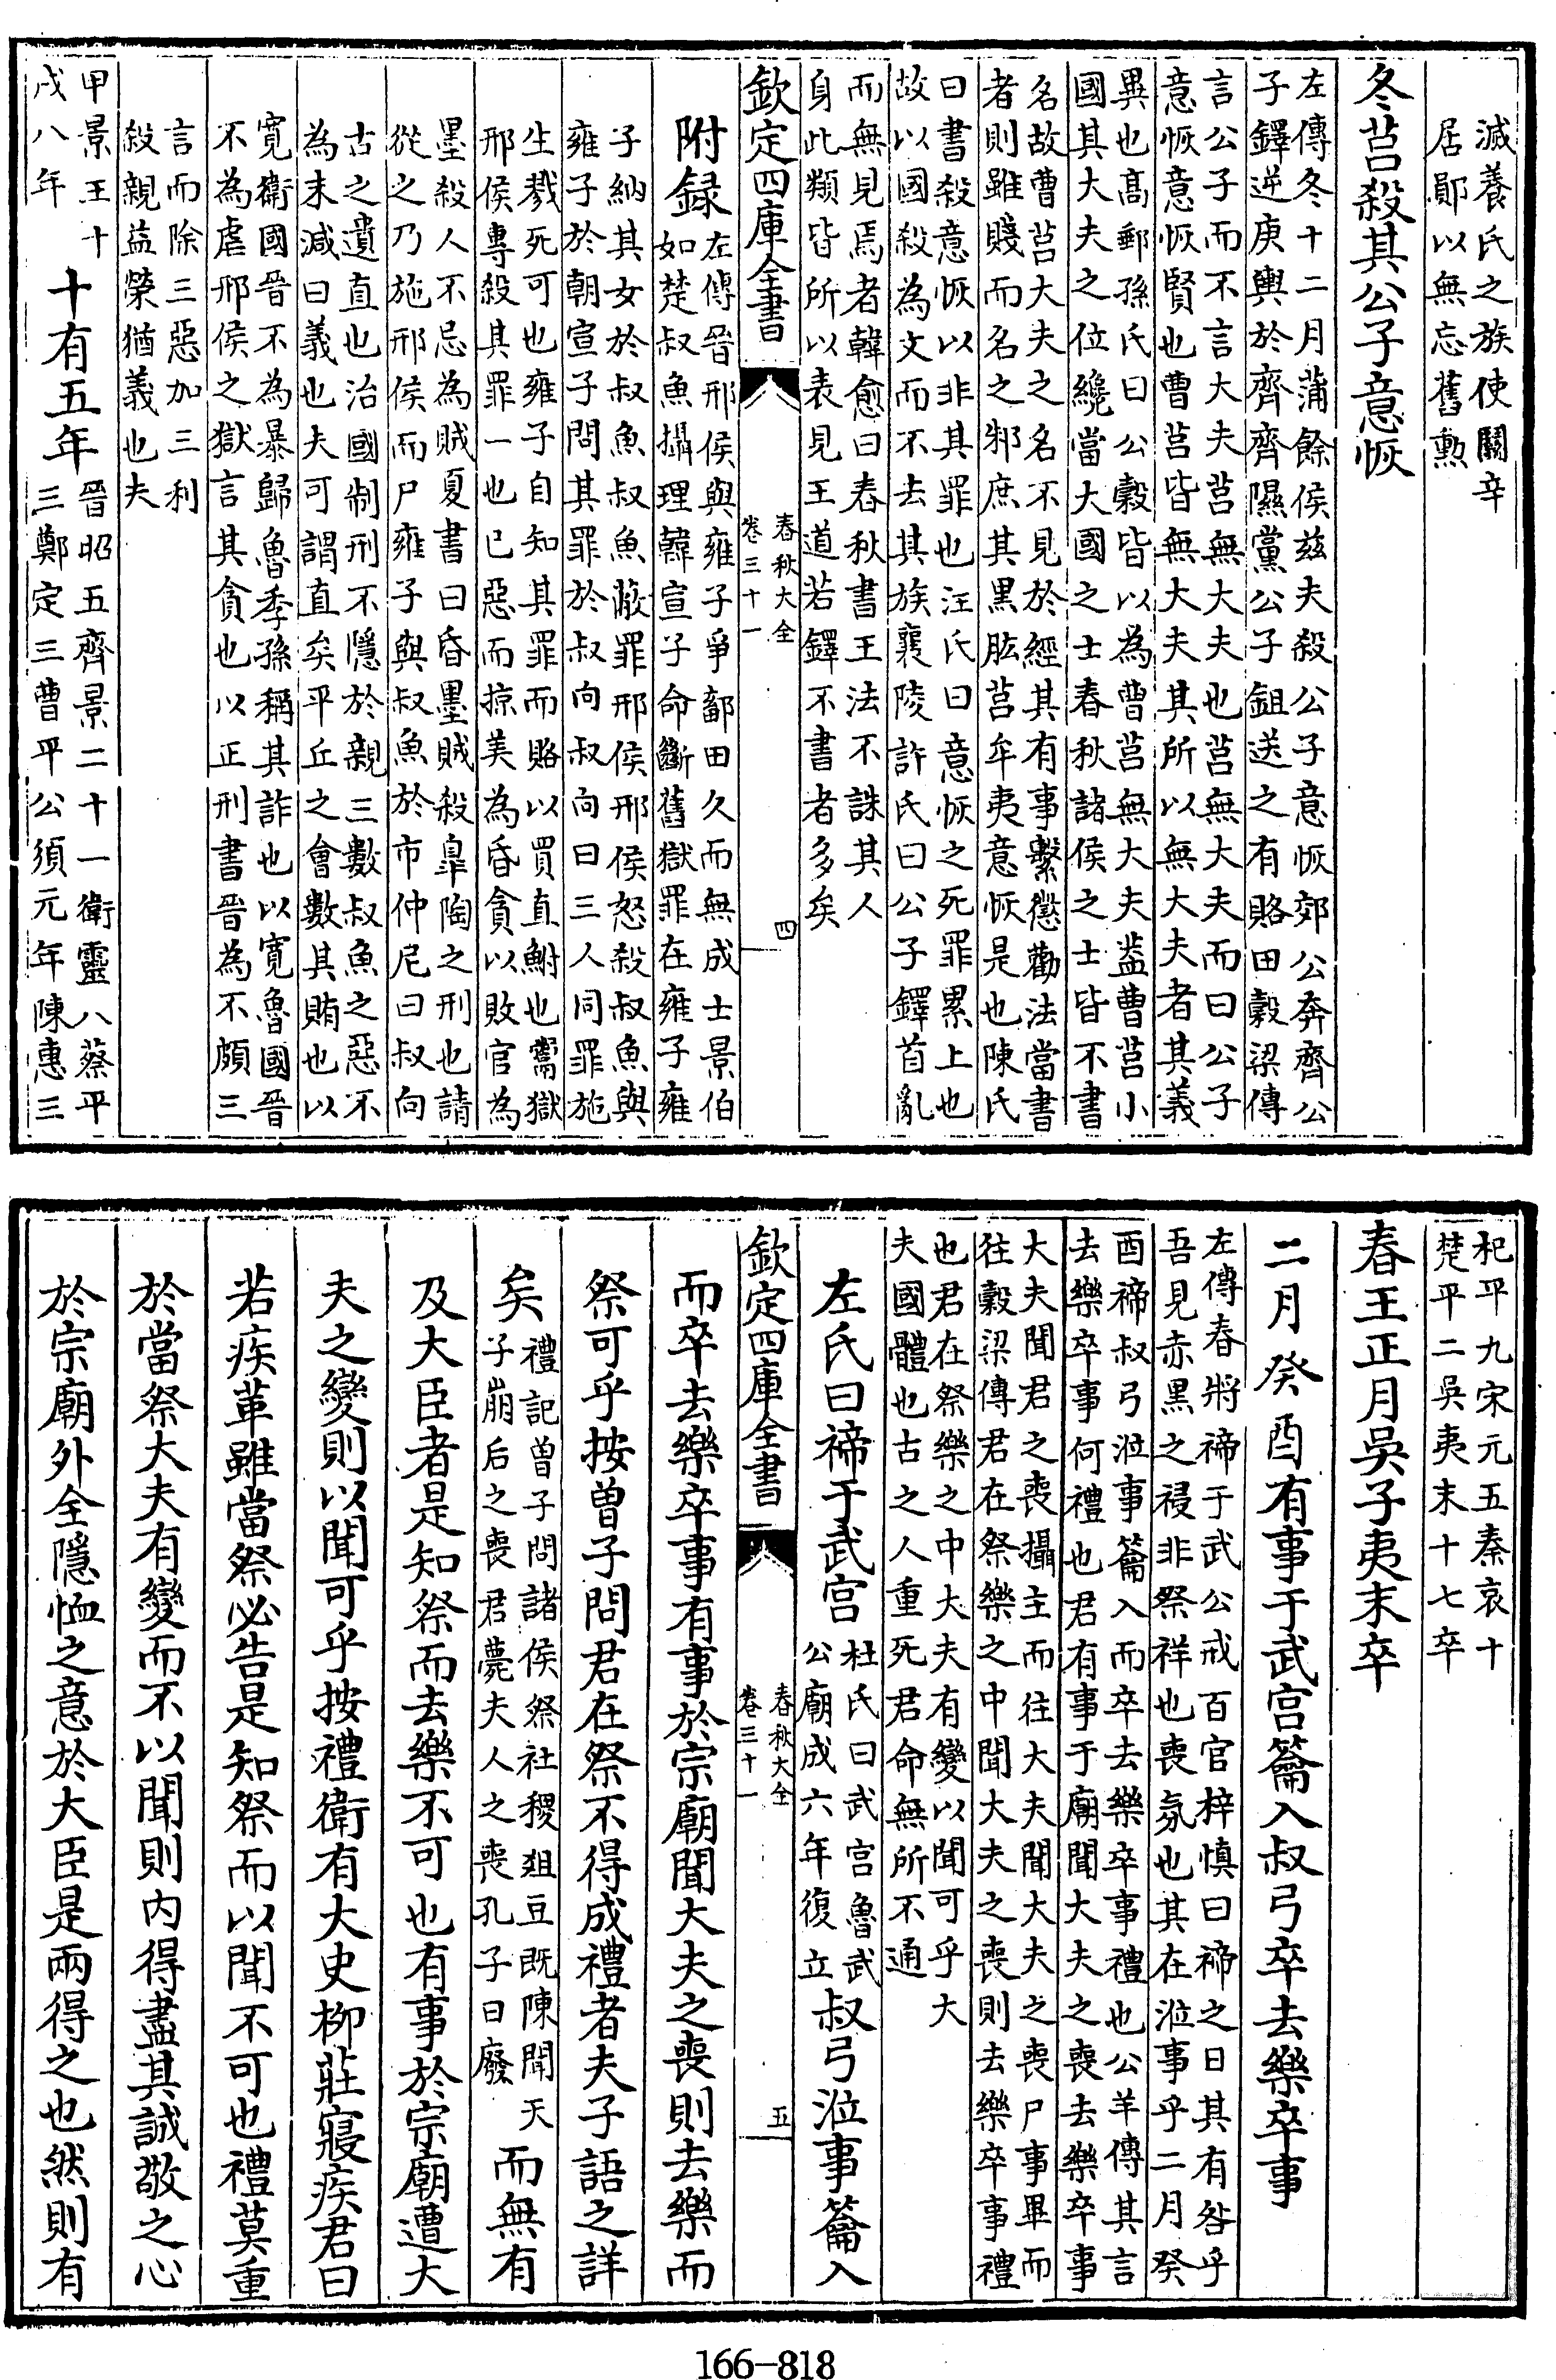 滅養氏之族使鬭辛
居鄖以無忘舊勲
冬莒殺其公子意恢
左傳冬十二月蒲餘侯兹夫殺公子意恢郊公奔齊公
子鐸逆庚輿於齊齊隰黨公子鉏送之有賂田穀梁傳
言公子而不言大夫莒無大夫也莒無大夫而曰公子
意恢意恢賢也曹莒皆無大夫其所以無大夫者其義
異也髙郵孫氏曰公穀皆以為曹莒無大夫盖曹莒小
國其大夫之位纔當大國之士春秋諸侯之士皆不書
名故曹莒大夫之名不見於經其有事繫懲勸法當書
者則雖賤而名之邾庶其黒肱莒牟夷意恢是也陳氏
曰書殺意恢以非其罪也汪氏曰意恢之死罪累上也
故以國殺為文而不去其族襄陵許氏曰公子鐸首亂
而無見焉者韓愈曰春秋書王法不誅其人
身此類皆所以表見王道若鐸不書者多矣
欽定四庫全書
春秋大全
卷三十一
四
附録
左傳晉邢侯與雍子爭鄐田久而無成士景伯
如楚叔魚攝理韓宣子命斷舊獄罪在雍子雍
子納其女於叔魚叔魚蔽罪邢侯邢侯怒殺叔魚與
雍子於朝宣子問其罪於叔向叔向曰三人同罪施
生戮死可也雍子自知其罪而賂以買直鮒也鬻獄
邢侯專殺其罪一也已惡而掠美為昏貪以敗官為
墨殺人不忌為賊夏書曰昏墨賊殺臯陶之刑也請
從之乃施邢侯而尸雍子與叔魚於市仲尼曰叔向
古之遺直也治國制刑不隱於親三數叔魚之惡不
為末減曰義也夫可謂直矣平丘之會數其賄也以
寛衛國晉不為暴歸魯季孫稱其詐也以寛魯國晉
不為虐邢侯之獄言其貪也以正刑書晉為不頗三
言而除三惡加三利
殺親益榮猶義也夫
甲景王十
戌八年
十有五年
晉昭五齊景二十一衛靈八蔡平
三鄭定三曹平公須元年陳惠三
杞平九宋元五秦哀十
楚平二吳夷末十七卒
春王正月吳子夷末卒
二月癸酉有事于武宫籥入叔弓卒去樂卒事
左傳春將禘于武公戒百官梓慎曰禘之日其有咎乎
吾見赤黒之祲非祭祥也喪氛也其在涖事乎二月癸
酉禘叔弓涖事籥入而卒去樂卒事禮也公羊傳其言
去樂卒事何禮也君有事于廟聞大夫之喪去樂卒事
大夫聞君之喪攝主而往大夫聞大夫之喪尸事畢而
往穀梁傳君在祭樂之中聞大夫之喪則去樂卒事禮
也君在祭樂之中大夫有變以聞可乎大
夫國體也古之人重死君命無所不通
左氏曰禘于武宫
杜氏曰武宫魯武
公廟成六年復立
叔弓涖事籥入
欽定四庫全書
春秋大全
卷三十一
五
而卒去樂卒事有事於宗廟聞大夫之喪則去樂而
祭可乎按曽子問君在祭不得成禮者夫子語之詳
矣
禮記曽子問諸侯祭社稷俎豆既陳聞天
子崩后之喪君薨夫人之喪孔子曰廢
而無有
及大臣者是知祭而去樂不可也有事於宗廟遭大
夫之變則以聞可乎按禮衛有大史栁莊寢疾君曰
若疾革雖當祭必告是知祭而以聞不可也禮莫重
於當祭大夫有變而不以聞則内得盡其誠敬之心
於宗廟外全隱恤之意於大臣是兩得之也然則有
166-818